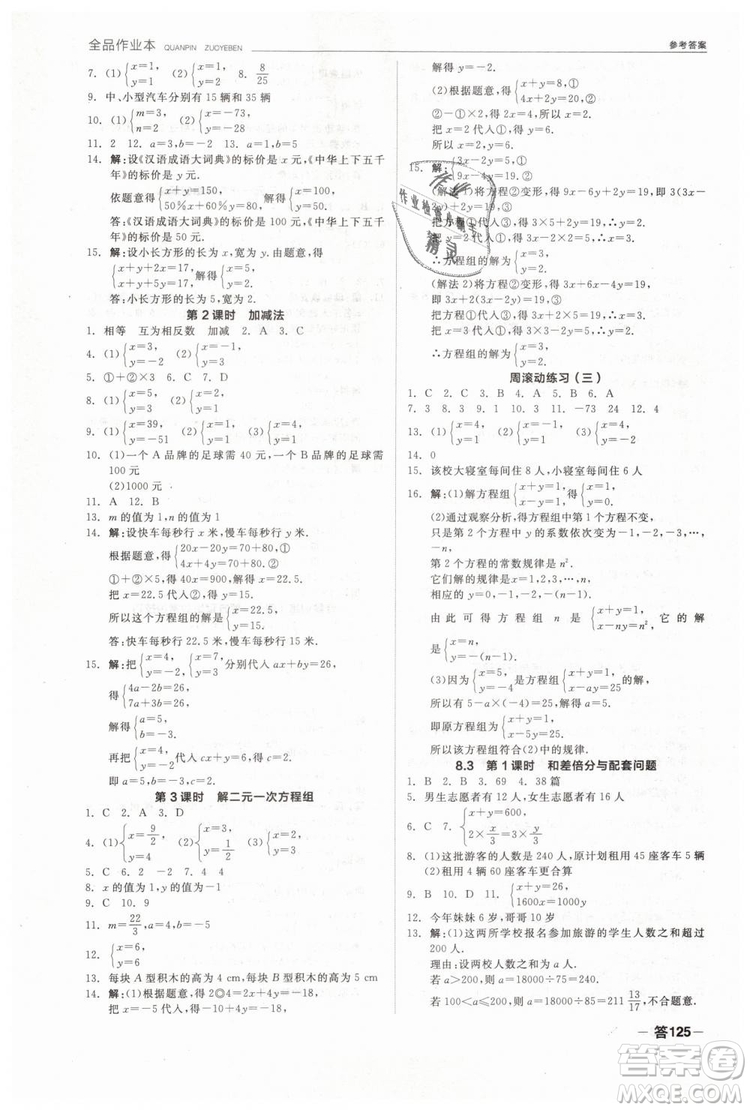 全品作业本 QUANPIN ZUOYEBEN
参考答案
7. (1){x=1, y=1 (2){x=1, y=2 8. 8/25
9. 中、小型汽车分别有 15 辆和 35 辆
10. (1){m=3, n=2 (2){x=-73, y=-28
11. 2 12. a=3,b=1 13. a=6,b=5
14. 解:设《汉语成语大词典》的标价是 x 元,《中华上下五千
年》的标价是 y 元.
依题意得{x+y=150, 50%x+60%y=80, 解得{x=100, y=50.
答:《汉语成语大词典》的标价是 100 元,《中华上下五千
年》的标价是 50 元.
15. 解:设小长方形的长为 x,宽为 y,根据题意,得
{x+y+2x=17, x+y+2y=11, 解得{x=5, y=2.
答:小长方形的长为 5,宽为 2.
第 2 课时 加减法
1. 相等 互为相反数 加减 2. A 3. C
4. (1){x=3, y=-1 (2){x=1, y=-2
5. ①+②×3 6. C 7. D
8. (1){x=3, y=-1 (2){x=2, y=1
9. (1){x=39, y=-51 (2){x=1, y=1 (3){x=4, y=1
10. (1)一个 A 品牌的足球需 40 元,一个 B 品牌的足球需
100 元
(2)1000 元
11. A 12. B
13. m 的值为 1,n 的值为 1
14. 解:设快车每秒行 x 米,慢车每秒行 y 米.
根据题意,得{20x-20y=70+80,① 4x+4y=70+80,②
①+②×5,得 40x=900,解得 x=22.5.
把 x=22.5 代入①,得 y=15.
所以这个方程组的解是{x=22.5, y=15.
答:快车每秒行 22.5 米,慢车每秒行 15 米.
15. 解:把{x=4, y=-2,{x=7, y=3 分别代入 ax+by=26,
得{4a-2b=26, 7a+3b=26,
解得{a=5, b=-3.
再把{x=4, y=-2 代入 cx+y=6,得 4c-2=6,
所以 c=2.
第 3 课时 解二元一次方程组
1. C 2. A 3. D
4. (1){x=9/2, y=4 (2){x=1, y=1/2 (3){x=2, y=-1
5. C 6. -2 7. 4
8. x 的值为 5,y 的值为-1
9. C 10. -3
11. m=22/3
12. {x=6, y=4
13. 每块 A 型积木的高为 4 cm,每块 B 型积木的高为 5 cm
14. 解:(1)根据题意,得 2◎4=2a+4b=10.
把 b=2 代入,得 2a+4×2=10,
解得 a=1.
(2)根据题意,得{x+y=8,① 4x+2y=20.②
②-①×2,得 2x=4,所以 x=2.
把 x=2 代入①,得 y=6.
所以 x=2,y=6.
15. 解:
(解法 1)将方程②变形,得 9x-6y+2y=19,即 3(3x-
2y)+2y=19,③
把方程①代入③,得 3×5+2y=19,∴y=2.
把 y=2 代入①,得 x=3.
∴方程组的解为{x=3, y=2.
(解法 2)将方程②变形,得 3x+6x-4y=19,
即 3x+2(3x-2y)=19,③
把方程①代入③,得 3x+2×5=19,∴x=3.
把 x=3 代入①,得 y=2.
∴方程组的解为{x=3, y=2.
周滚动练习(三)
14. 0
15. 该校大寝室每间住 8 人,小寝室每间住 6 人
16. 解:(1)解方程组{x+y=1, x-y=1, 得{x=1, y=0.
(2)通过观察分析,得方程组中第 1 个方程不变,
只是第 2 个方程中 y 的系数依次变为-1,-2,-3,…,
-n,
第 2 个方程的常数规律是 n².
它们解的规律是 x=1,2,3,…,n,
相应的 y=0,-1,-2,…,-(n-1).
由此可得方程组 n 是{x+y=1, x-ny=n², 它的解
是{x=n, y=-(n-1).
(3)因为
所以有 5-a×(-4)=25,解得 a=5.
所以该方程组符合(2)中的规律.
8.3 第 1 课时 和差倍分与配套问题
1. B 2. B 3. 69 4. 38篇
5. 男生志愿者有 12 人,女生志愿者有 16 人
6. C 7. {x+y=600, 2×x/3=3×y/
8. (1)这批游客的人数是 240 人,原计划租用 45 座客车 5 辆
(2)租用 4 辆 60 座客车更合算
9. B 10. D 11. {x+y=26, 1600x=1000y
12. 今年妹妹 6 岁,哥哥 10 岁
13. 解:(1)这两所学校报名参加旅游的学生人数之和超过
200 人.
理由:设两校人数之和为 a.
若 a>200,则 a=18000÷75=240;
若 100<a≤200,则 a=18000÷85=211 13/17,不合题意.
— 答125 —
答案圈